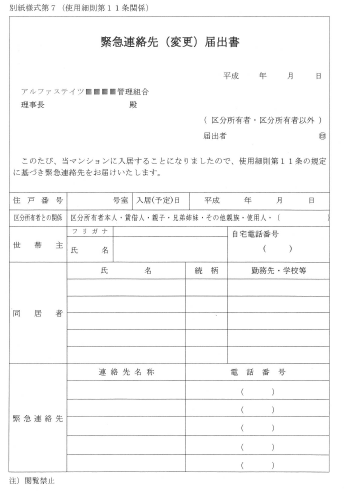 別紙様式第７（使用細則第１１条関係）
緊急連絡先（変更）届出書
平成　　年　　月　　日
アルファステイツ■■■■管理組合
理事長　　　　　　　　殿
（区分所有者・区分所有者以外）
届出者　　　　　　　　㊞
このたび、当マンションに入居することになりましたので、使用細則第１１条の規定
に基づき緊急連絡先をお届けいたします。
住戸番号　　　号室　入居(予定)日　平成　　年　　月　　日
区分所有者との関係　区分所有者本人・賃借人・親子・兄弟姉妹・その他親族・使用人・（　　　　）
世帯主　フリガナ　自宅電話番号
氏名　（　　）
同居者　氏名　続柄　勤務先・学校等
緊急連絡先　連絡先名称　電話番号
（　　）
（　　）
（　　）
（　　）
（　　）
注）閲覧禁止